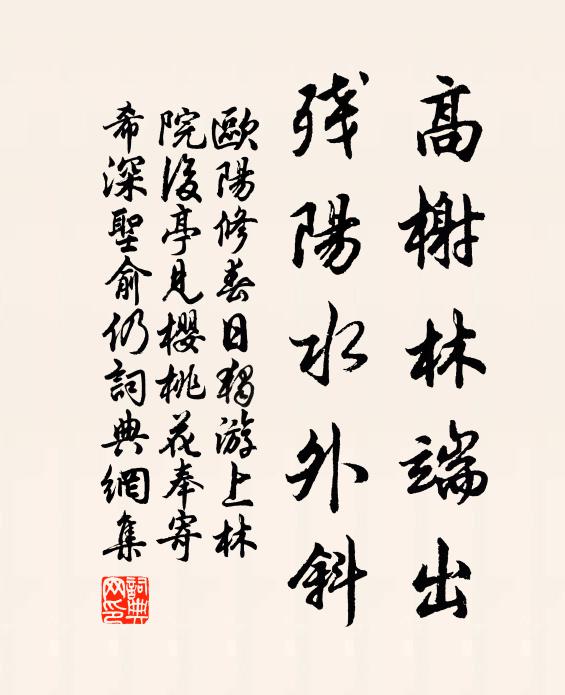 高榭林端出
残陽水外斜
歐陽修春日獨游上林
院後亭見櫻桃花奉寄
希深聖俞仍詞典網集
詞典
网印